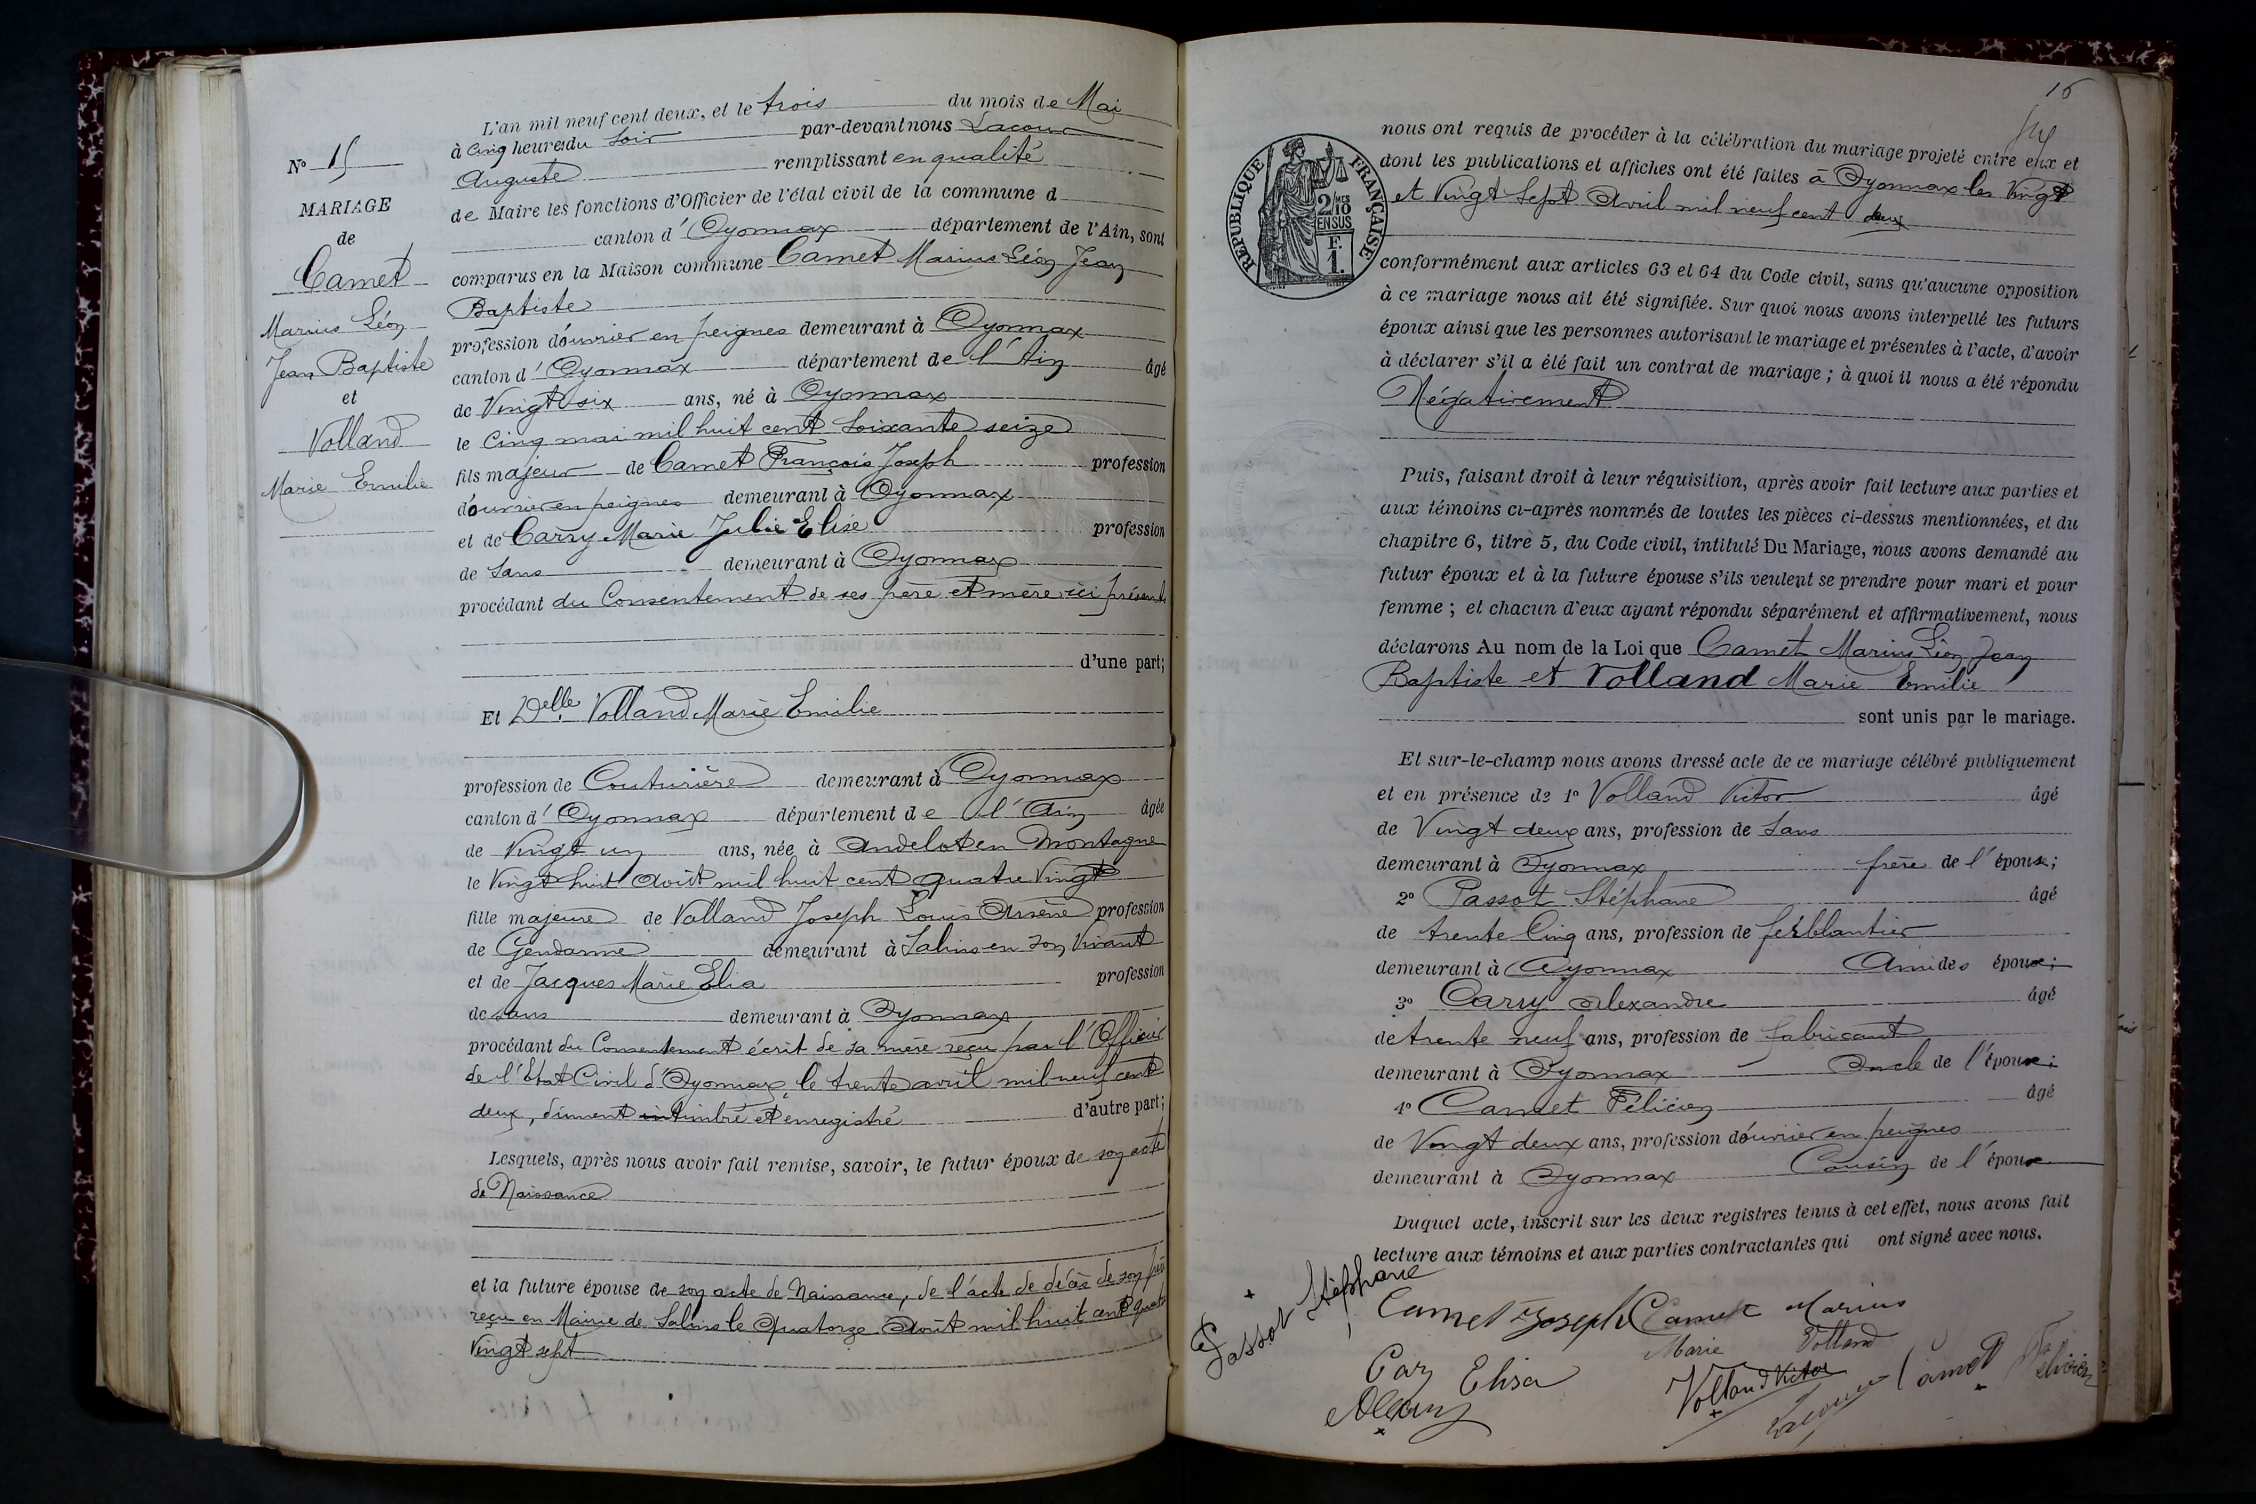 L'an mil neuf cent deux, et le trois du mois de Mai
à Cinq heures du Soir par-devant nous Lacour
Auguste remplissant en qualité
de Maire les fonctions d'Officier de l'état civil de la commune d
canton d'Oyonnax département de l'Ain, sont
comparus en la Maison commune Camet Marius Léon Jean
Baptiste
profession d'ouvrier en peignes demeurant à Oyonnax
canton d'Oyonnax département de l'Ain âgé
de Vingt six ans, né à Oyonnax
le Cinq mai mil huit cent soixante seize
fils majeur de Camet François Joseph profession
d'ouvrier en peignes demeurant à Oyonnax
et de Carry Marie Julie Elise profession
de sans demeurant à Oyonnax
procédant du Consentement de ses père et mère ici présents
d'une part;
Et Delle Volland Marie Emilie
profession de Couturière demeurant à Oyonnax
canton d'Oyonnax département de l'Ain âgée
de Vingt un ans, née à Andelot en Montagne
le Vingt huit Août mil huit cent quatre Vingt
fille majeure de Volland Joseph Louis Arsène profession
de Gendarme demeurant à Salins en son Vivant
et de Jacques Marie Elia profession
de sans demeurant à Oyonnax
procédant du Consentement écrit de sa mère reçu par l'Officier
de l'Etat Civil d'Oyonnax le trente avril mil neuf cent
deux, dûment timbré et enregistré d'autre part;
Lesquels, après nous avoir fait remise, savoir, le futur époux de son acte
de Naissance
et la future épouse de son acte de Naissance, de l'acte de décès de son père
reçu en Mairie de Salins le Quatorze Août mil huit cent quatre
Vingt sept
No 15
MARIAGE
de
Camet
Marius Léon
Jean Baptiste
et
Volland
Marie Emilie
16
RÉPUBLIQUE FRANÇAISE
2/10 MES
EN SUS
F.
1.
nous ont requis de procéder à la célébration du mariage projeté entre eux et
dont les publications et affiches ont été faites à Oyonnax les Vingt
et Vingt Sept Avril mil neuf cent deux
conformément aux articles 63 et 64 du Code civil, sans qu'aucune opposition
à ce mariage nous ait été signifiée. Sur quoi nous avons interpellé les futurs
époux ainsi que les personnes autorisant le mariage et présentes à l'acte, d'avoir
à déclarer s'il a été fait un contrat de mariage; à quoi il nous a été répondu
Négativement
Puis, faisant droit à leur réquisition, après avoir fait lecture aux parties et
aux témoins ci-après nommés de toutes les pièces ci-dessus mentionnées, et du
chapitre 6, titre 5, du Code civil, intitulé Du Mariage, nous avons demandé au
futur époux et à la future épouse s'ils veulent se prendre pour mari et pour
femme; et chacun d'eux ayant répondu séparément et affirmativement, nous
déclarons Au nom de la Loi que Camet Marius Léon Jean
Baptiste et Volland Marie Emilie
sont unis par le mariage.
Et sur-le-champ nous avons dressé acte de ce mariage célébré publiquement
et en présence de 1° Volland Victor âgé
de Vingt deux ans, profession de Sans
demeurant à Oyonnax frère de l'épouse;
2° Passot Stéphane âgé
de trente Cinq ans, profession de ferblantier
demeurant à Oyonnax Ami des époux;
3° Carry Alexandre âgé
de trente neuf ans, profession de fabricant
demeurant à Oyonnax Oncle de l'époux;
4° Camet Félicien âgé
de Vingt deux ans, profession d'ouvrier en peignes
demeurant à Oyonnax Cousin de l'époux
Duquel acte, inscrit sur les deux registres tenus à cet effet, nous avons fait
lecture aux témoins et aux parties contractantes qui ont signé avec nous.
Passot Stéphane
Camet Joseph Camet Marius
Marie Volland
Elisa
Volland Victor
Camet Félicien
Lacour